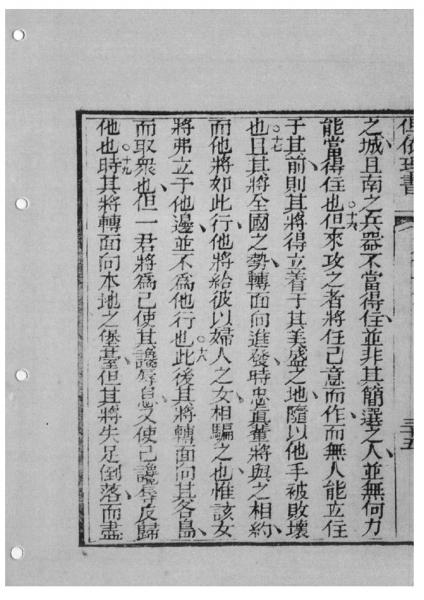 但依理書
三十五
之城且南之兵器不當得住並非其簡選之人並無何力
能當得住也○十六但來攻之者將任己意而作而無人能立住
于其前則其將得立着于其美盛之地隨以他手被敗壞
也○十七且其將全國之勢轉面向進發時忠直輩將與之相約
而他將如此行他將給彼以婦人之女相騙之也惟該女
將弗立于他邊並不為他行也○十八此後其將轉面向其各島
而取眾也但一君將為己使其讒辱息又使己讒辱反歸
他也○十九時其將轉面向本地之堡臺但其將失足倒落而盡